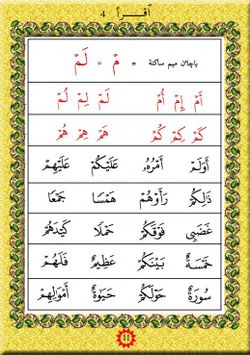 اقرأ 4
باچاءن ميم ساكنة = مْ = لَمْ
أَمْ إِمْ أُمْ لَمْ لِمْ لُمْ
كَمْ كِمْ كُمْ هَمْ هِمْ هُمْ
أَوَلَمْ أَمْرُهُ عَلَيْكُمْ عَلَيْهِمْ
ذَلِكُمْ رَأَوْهُمْ هَمْسًا جَمْعًا
غَضَبِيْ فَوْقَكُمْ حَمْلًا كَيْدَهُمْ
خَمْسَةٌ بَيْنَكُمْ عَظِيْمٌ فَلَهُمْ
سُوْرَةٌ حَوْلَكُمْ حَيَوةٌ أَمْوَلِهِمْ
11